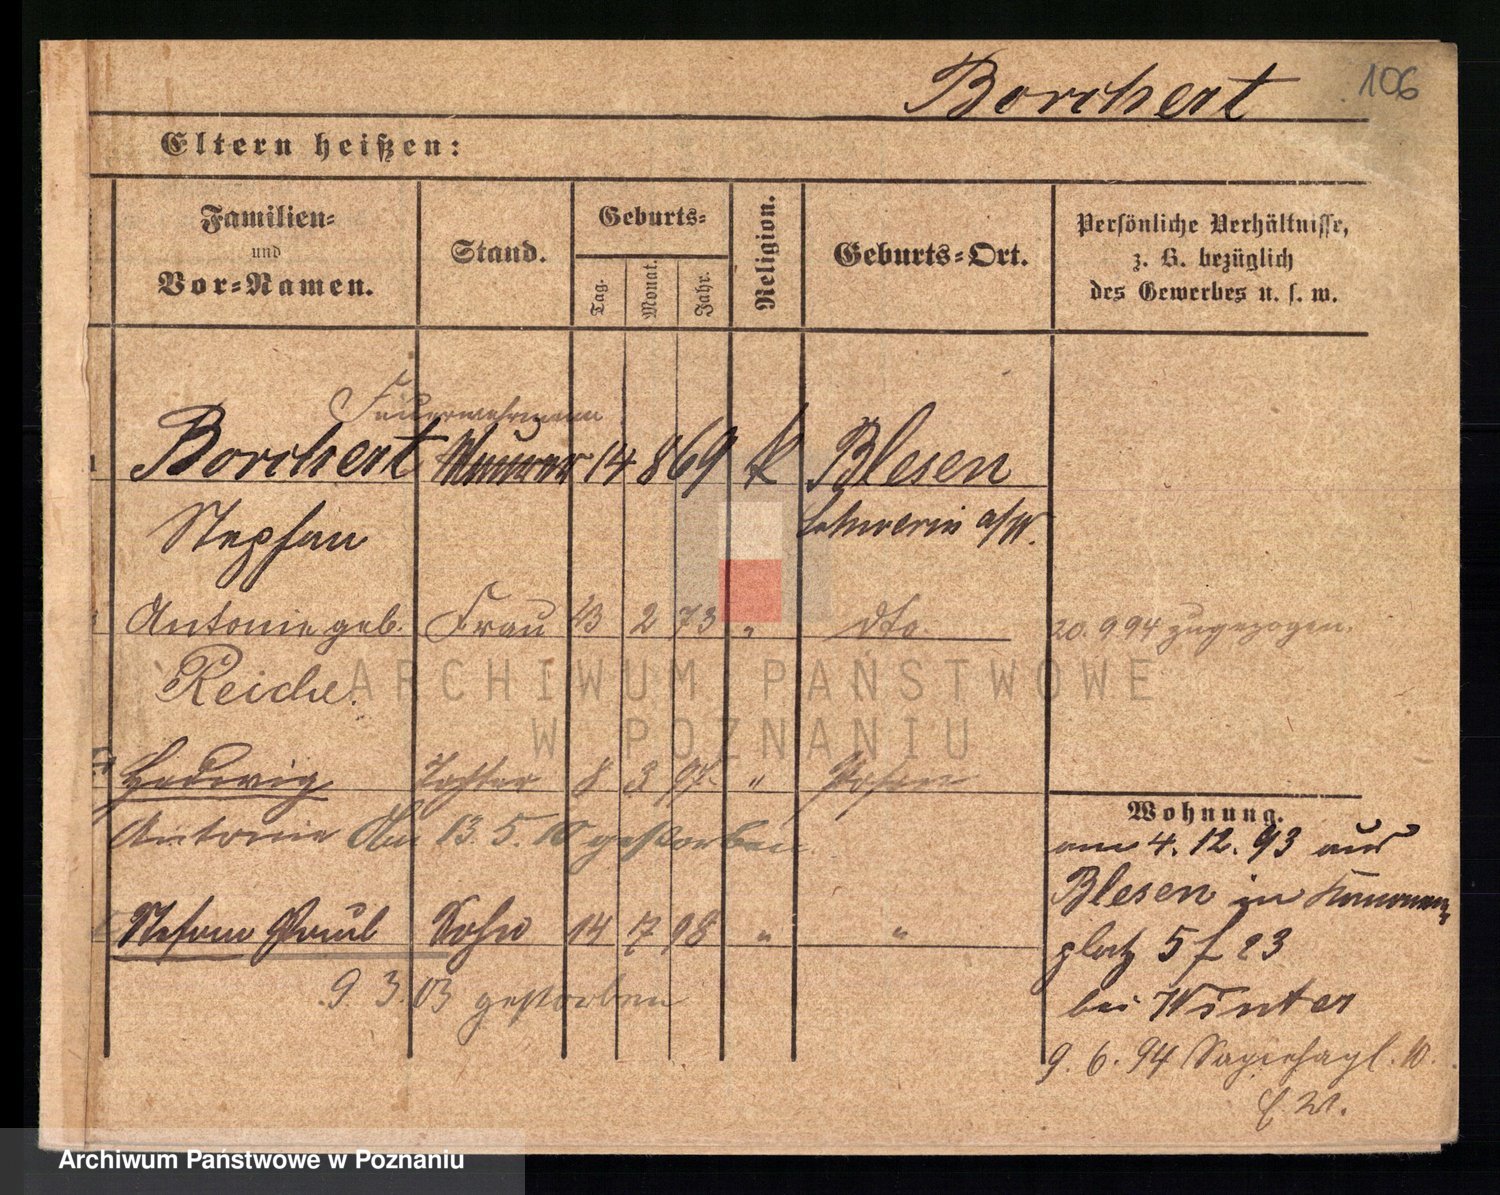 Borchert 106
Eltern heißen:
Familien-
und
Vor-Namen.
Stand.
Geburts-
Tag.
Monat.
Jahr.
Religion.
Geburts-Ort.
Persönliche Verhältnisse,
z. B. bezüglich
des Gewerbes u. s. w.
Feuerwehrmann
Borchert Maurer 14 8 69 k Blesen
Stephan Schwerin a/W.
Antonie geb. Frau 2 73 " dto. 20. 9 94 zugezogen.
Reiche.
ARCHIWUM PAŃSTWOWE
W POZNANIU
Hedwig Tochter 8 3 97. " Posen
Antonie Am 13. 5. 10 gestorben.
Wohnung.
am 4. 12. 93 aus
Blesen in
Stefan Paul Sohn 14 7 98 " "
platz 5 f 23
9 3. 03 gestorben
bei Winter
9. 6. 94 10.
Archiwum Państwowe w Poznaniu